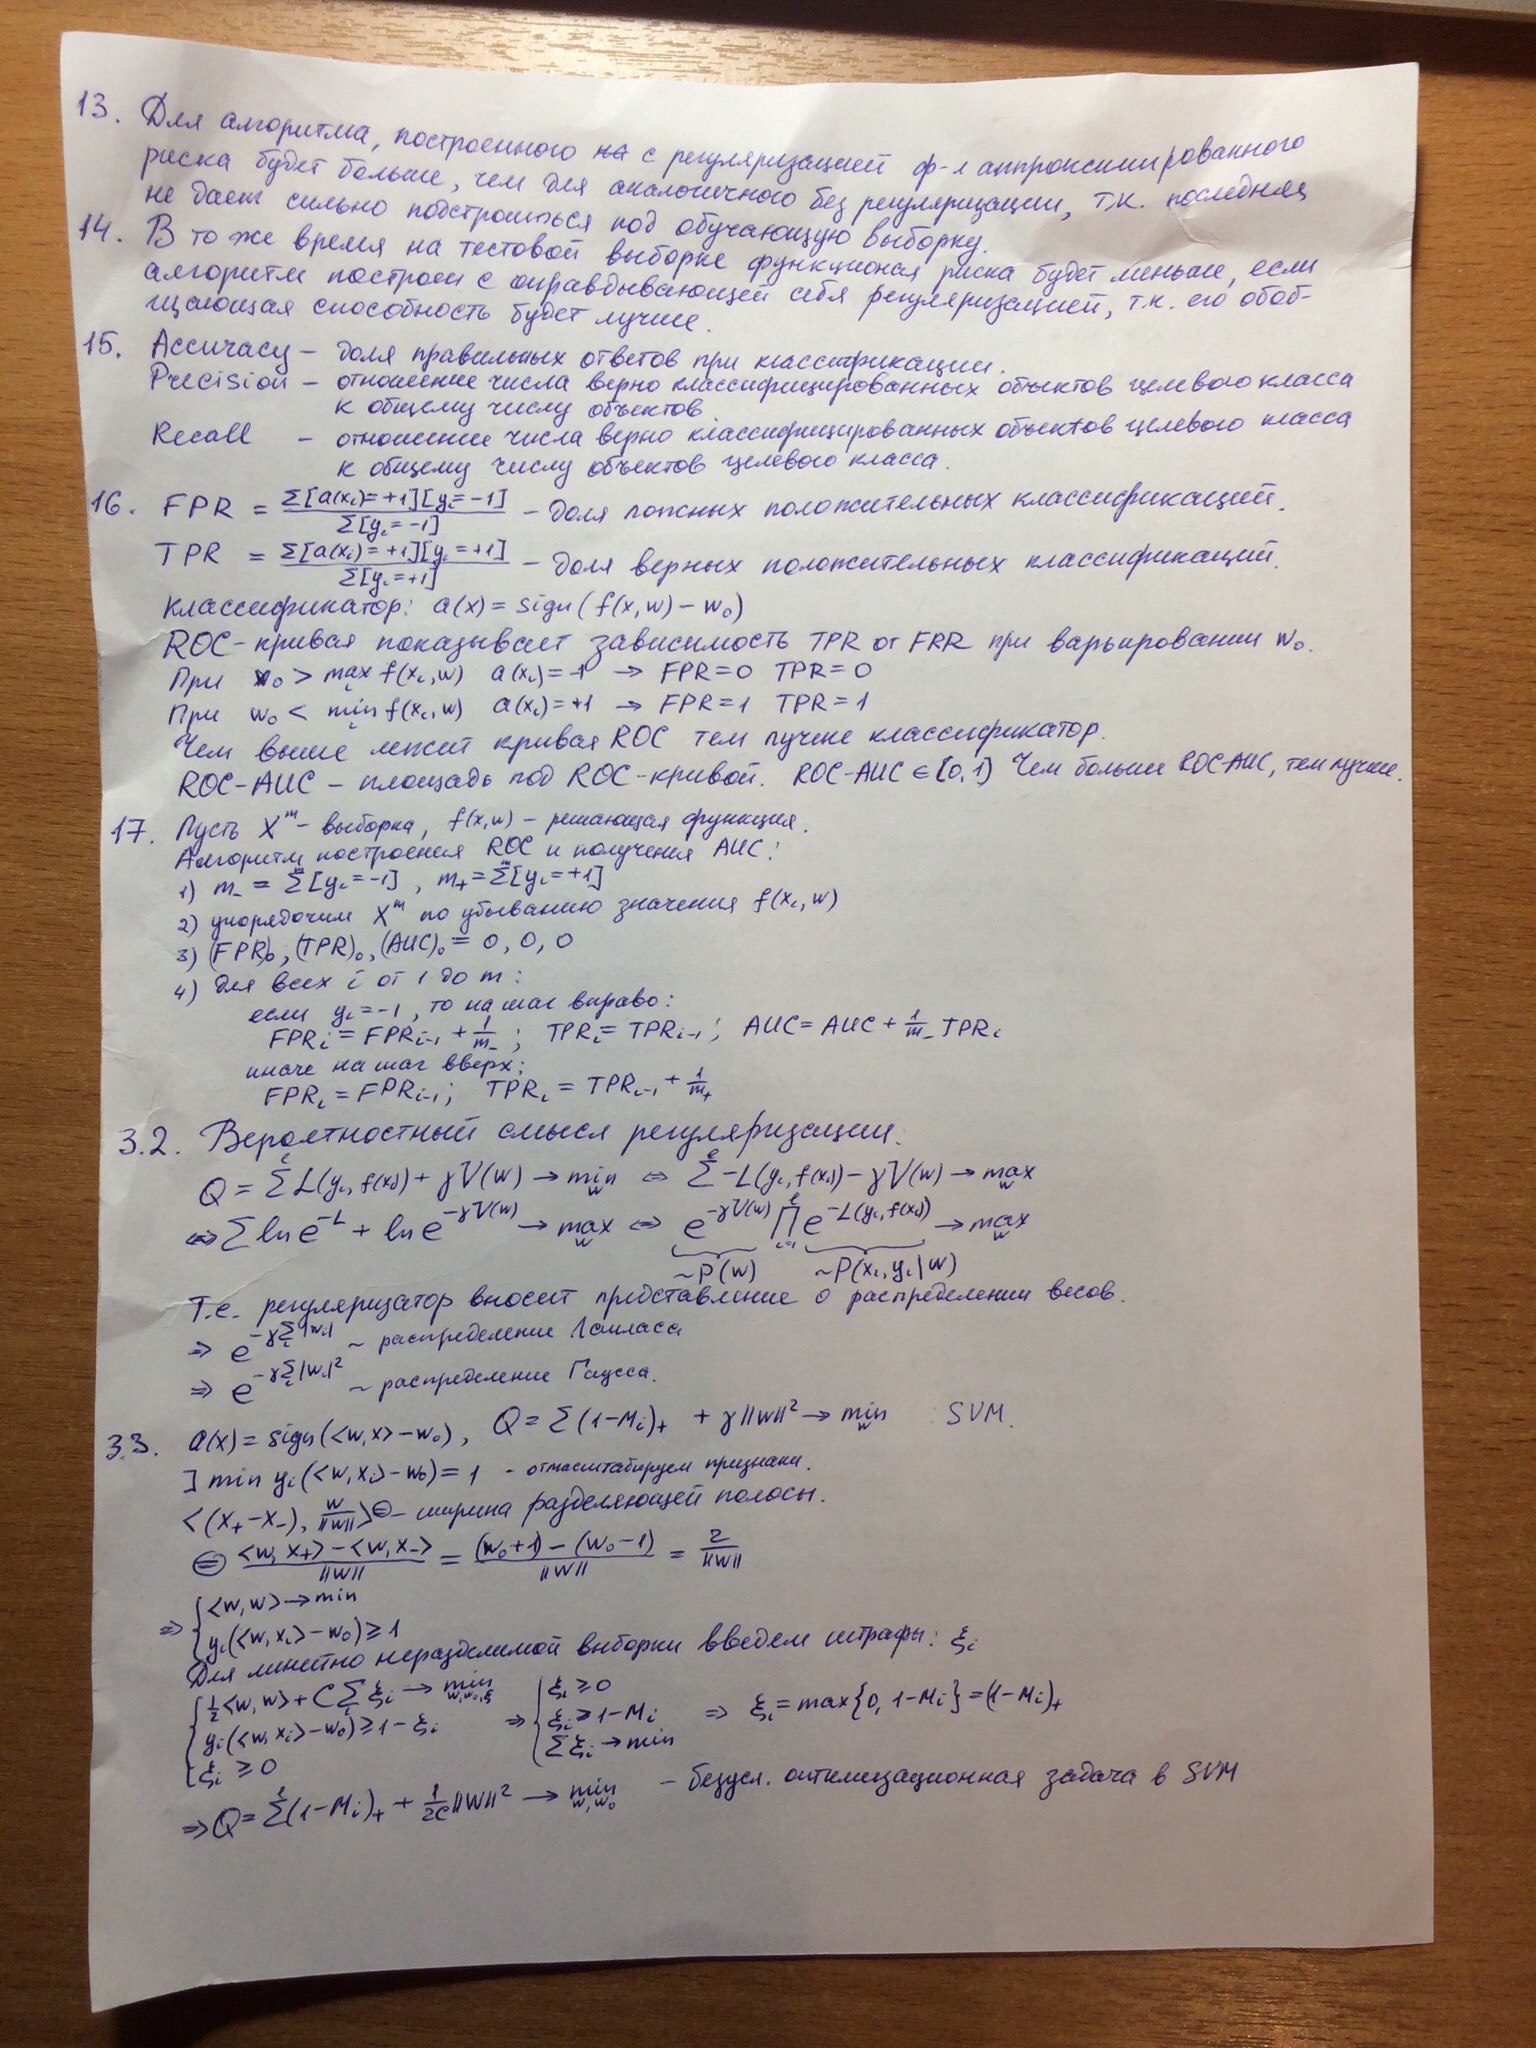 13. Для алгоритма, построенного с регуляризацией ф-л аппроксимированного
риска будет больше, чем для аналогичного без регуляризации, т.к. последняя
не дает сильно подстроиться под обучающую выборку.
14. В то же время на тестовой выборке функционал риска будет меньше, если
алгоритм построен с оправдывающей себя регуляризацией, т.к. его обоб-
щающая способность будет лучше.
15. Accuracy – доля правильных ответов при классификации.
Precision – отношение числа верно классифицированных объектов целевого класса
к общему числу объектов
Recall – отношение числа верно классифицированных объектов целевого класса
к общему числу объектов целевого класса.
16. FPR = Σ[a(xᵢ)=+1][yᵢ=-1] / Σ[yᵢ=-1] – доля ложных положительных классификаций.
TPR = Σ[a(xᵢ)=+1][yᵢ=+1] / Σ[yᵢ=+1] – доля верных положительных классификаций.
Классификатор: a(x) = sign(f(x,w) – w₀)
ROC-кривая показывает зависимость TPR от FRR при варьировании w₀.
При w₀ > max_i f(xᵢ,w) a(xᵢ)=-1 → FPR=0 TPR=0
При w₀ < min_i f(xᵢ,w) a(xᵢ)=+1 → FPR=1 TPR=1
Чем выше лежит кривая ROC тем лучше классификатор.
ROC-AUC – площадь под ROC-кривой. ROC-AUC ∈ [0,1] Чем больше ROC-AUC, тем лучше.
17. Пусть Xᵐ – выборка, f(x,w) – решающая функция.
Алгоритм построения ROC и получения AUC:
1) m₋ = Σᵐ[yᵢ=-1], m₊ = Σᵐ[yᵢ=+1]
2) упорядочим Xᵐ по убыванию значения f(xᵢ,w)
3) (FPR)₀, (TPR)₀, (AUC)₀ = 0, 0, 0
4) для всех i от 1 до m:
если yᵢ=-1, то на шаг вправо:
FPRᵢ = FPRᵢ₋₁ + 1/m₋; TPRᵢ = TPRᵢ₋₁; AUC = AUC + 1/m₋ TPRᵢ
иначе на шаг вверх:
FPRᵢ = FPRᵢ₋₁; TPRᵢ = TPRᵢ₋₁ + 1/m₊
3.2. Вероятностный смысл регуляризации.
Q = Σ^ℓ L(yᵢ, f(xᵢ)) + γV(w) → min_w ⇔ Σ^ℓ -L(yᵢ, f(xᵢ)) – γV(w) → max_w
⇔ Σ ln e^{-L} + ln e^{-γV(w)} → max_w ⇔ e^{-γV(w)} ∏_{i=1}^ℓ e^{-L(yᵢ, f(xᵢ))} → max_w
~P(w) ~P(xᵢ, yᵢ|w)
Т.е. регуляризатор вносит представление о распределении весов.
⇒ e^{-γΣ_i|wᵢ|} ~ распределение Лапласа
⇒ e^{-γΣ_i|wᵢ|²} ~ распределение Гаусса.
3.3. a(x) = sign(<w,x> – w₀), Q = Σ(1-Mᵢ)₊ + γ||w||² → min_w SVM.
] min yᵢ(<w,xᵢ> – w₀) = 1 - отмасштабируем признаки.
<(x₊ – x₋), w/||w||> ⊜ – ширина разделяющей полосы.
⊜ (<w,x₊> – <w,x₋>)/||w|| = ((w₀+1) – (w₀–1))/||w|| = 2/||w||
⇒ { <w,w> → min
yᵢ(<w,xᵢ> – w₀) ≥ 1
Для линейно неразделимой выборки введем штрафы: ξᵢ
{ ½<w,w> + CΣ_i ξᵢ → min_{w,w₀,ξ} { ξᵢ ≥ 0
yᵢ(<w,xᵢ> – w₀) ≥ 1 – ξᵢ ⇒ ξᵢ ≥ 1–Mᵢ ⇒ ξᵢ = max{0, 1-Mᵢ} = (1-Mᵢ)₊
ξᵢ ≥ 0 Σξᵢ → min
⇒ Q = Σ^ℓ(1-Mᵢ)₊ + 1/2C ||w||² → min_{w,w₀} – безусл. оптимизационная задача в SVM